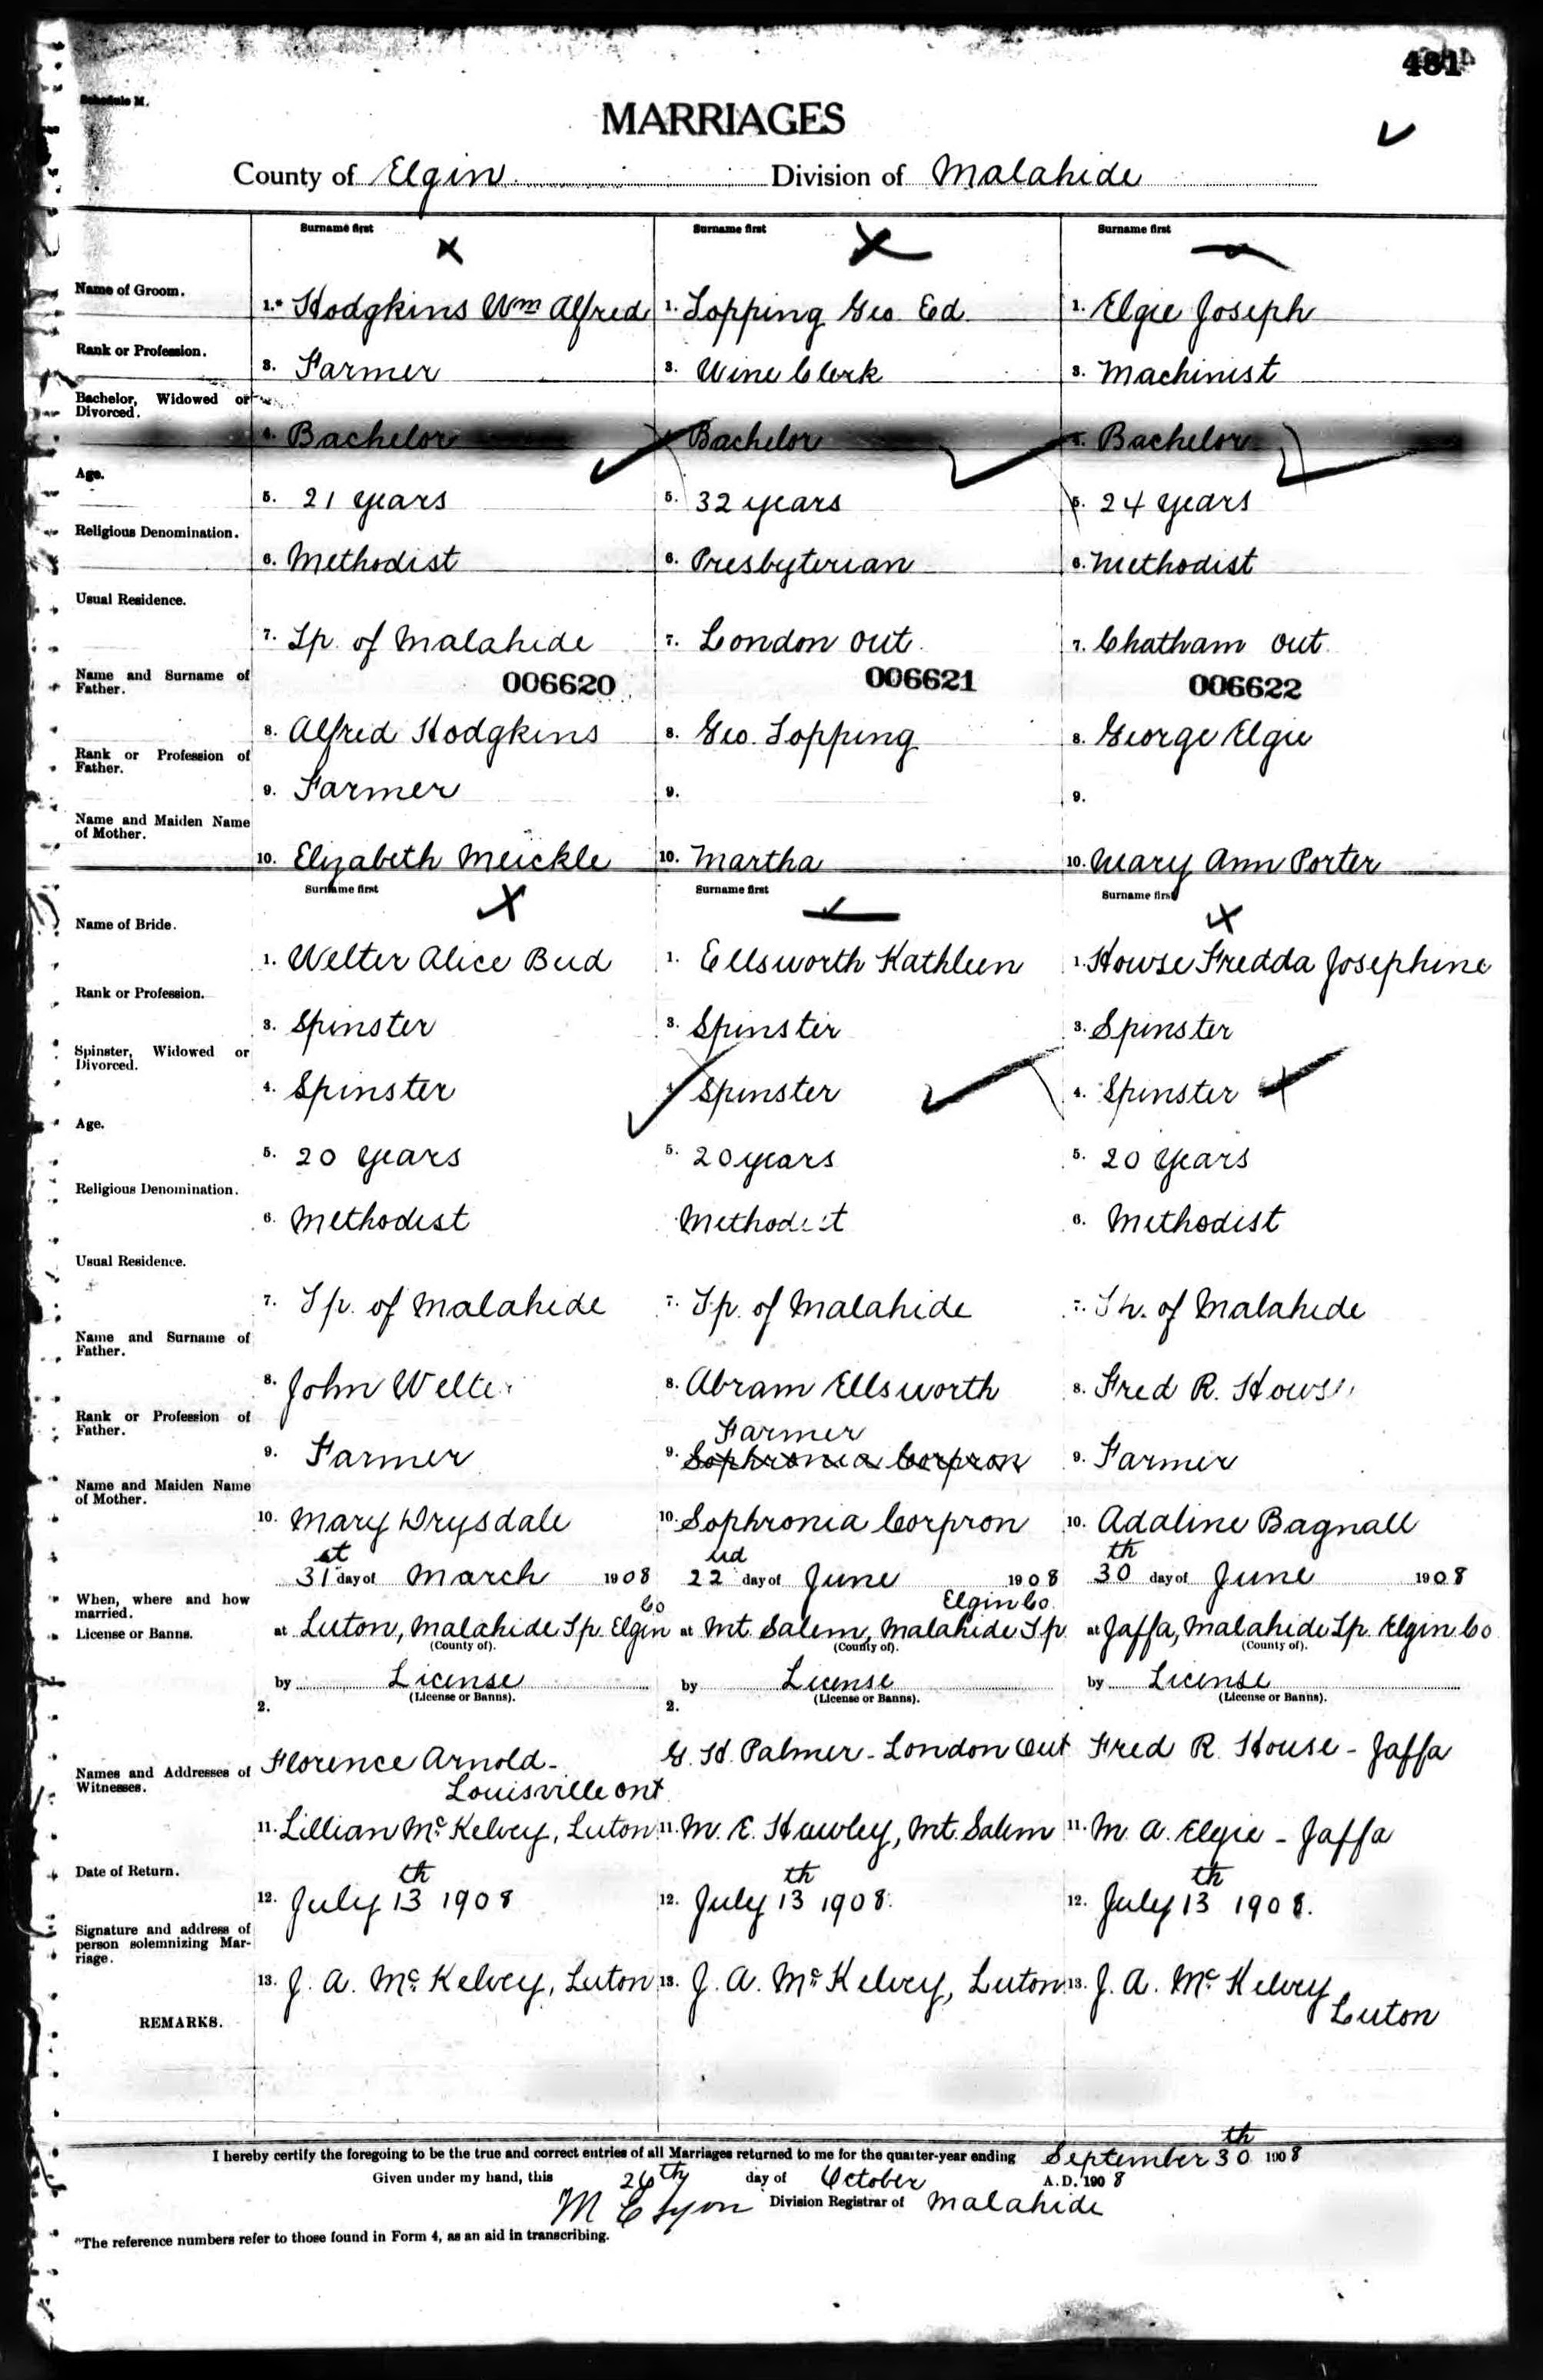 481
Schedule M.
MARRIAGES
County of Elgin Division of Malahide
Surname first Surname first Surname first
Name of Groom. 1.* Hodgkins Wm Alfred 1. Topping Geo. Ed. 1. Elgie Joseph
Rank or Profession. 3. Farmer 3. Wine Clerk 3. Machinist
Bachelor, Widowed or
Divorced. 4. Bachelor Bachelor 4. Bachelor
Age. 5. 21 years 5. 32 years 5. 24 years
Religious Denomination. 6. Methodist 6. Presbyterian 6. Methodist
Usual Residence. 7. Tp. of Malahide 7. London Ont. 7. Chatham Ont.
006620 006621 006622
Name and Surname of
Father. 8. Alfred Hodgkins 8. Geo. Topping 8. George Elgie
Rank or Profession of
Father. 9. Farmer 9. 9.
Name and Maiden Name
of Mother. 10. Elizabeth Meickle 10. Martha 10. Mary Ann Porter
Surname first Surname first Surname first
Name of Bride. 1. Welter Alice Bud 1. Ellsworth Kathleen 1. House Fredda Josephine
Rank or Profession. 3. Spinster 3. Spinster 3. Spinster
Spinster, Widowed or
Divorced. 4. Spinster 4. Spinster 4. Spinster
Age. 5. 20 years 5. 20 years 5. 20 years
Religious Denomination. 6. Methodist Methodist 6. Methodist
Usual Residence. 7. Tp. of Malahide 7. Tp. of Malahide 7. Tp. of Malahide
Name and Surname of
Father. 8. John Welter 8. Abram Ellsworth 8. Fred R. House
Farmer
Rank or Profession of
Father. 9. Farmer 9. Sophronia Corpron 9. Farmer
Name and Maiden Name
of Mother. 10. Mary Drysdale 10. Sophronia Corpron 10. Adaline Bagnall
31st day of March 1908 22nd day of June 1908 30th day of June 1908
When, where and how
married. Co Elgin Co.
License or Banns. at Luton, Malahide Tp. Elgin at Mt. Salem, Malahide Tp. at Jaffa, Malahide Tp. Elgin Co
(County of). (County of). (County of).
by License by License by License
(License or Banns). (License or Banns). (License or Banns).
2. 2.
Names and Addresses of
Witnesses. Florence Arnold - G. H. Palmer - London Ont Fred R. House - Jaffa
Louisville Ont
11. Lillian McKelvey, Luton 11. M. E. Hawley, Mt. Salem 11. M. A. Elgie - Jaffa
Date of Return. 12. July 13th 1908 12. July 13th 1908. 12. July 13th 1908.
Signature and address of
person solemnizing Mar-
riage. 13. J. A. McKelvey, Luton 13. J. A. McKelvey, Luton 13. J. A. McKelvey
Luton
REMARKS.
I hereby certify the foregoing to be the true and correct entries of all Marriages returned to me for the quarter-year ending September 30th 1908
Given under my hand, this 26th day of October A.D. 1908
M E Lyon Division Registrar of Malahide
*The reference numbers refer to those found in Form 4, as an aid in transcribing.